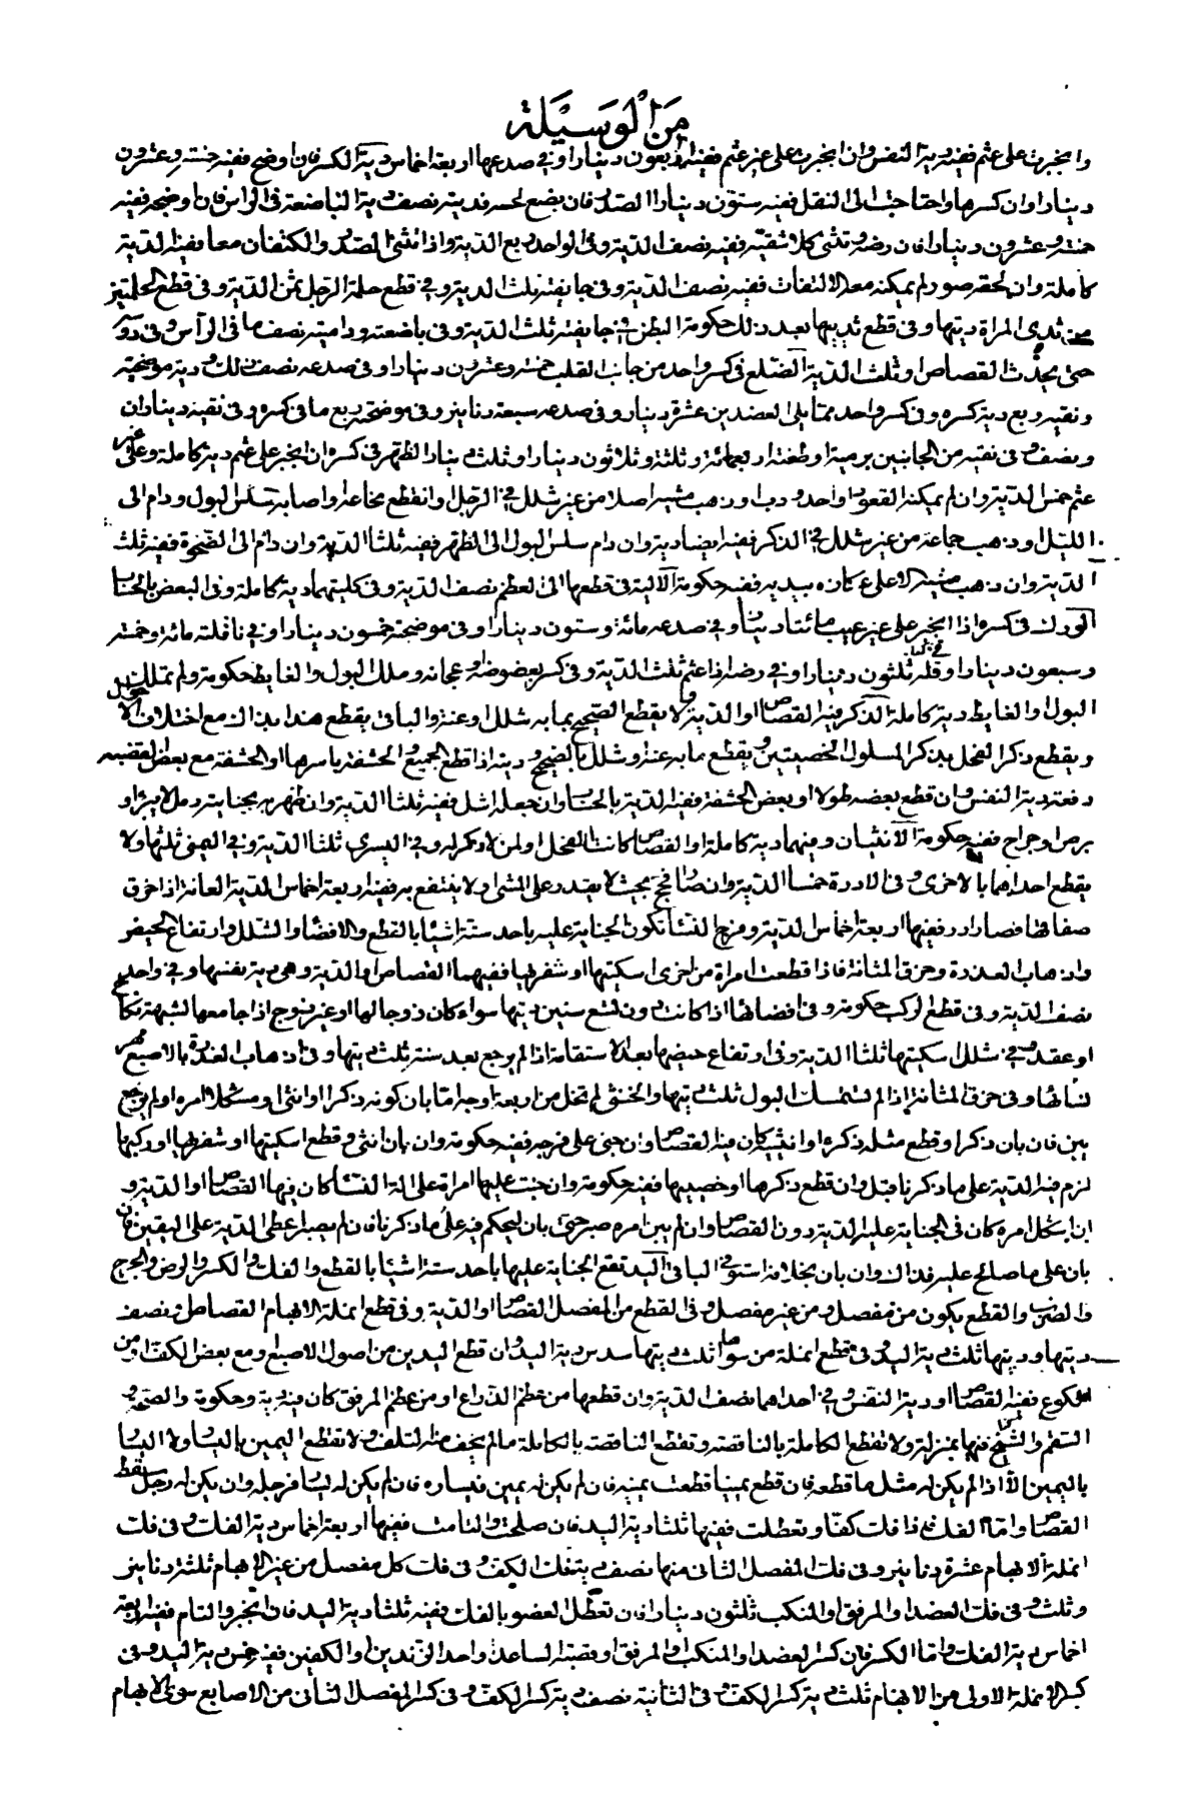 من الوسيلة
وانجبرت على عثم ففيه دية النفس وان انجبرت على غير عثم ففيه اربعون دينارا وفي صدعها اربعة اخماس دية الكسر فان اوضح ففيه خمسة وعشرون
دينارا وان كسرها واحتاجت الى النقل ففيه ستون دينارا الصدر فان بضع لحمه فديته نصف دية الباضعة في الراس فان اوضحه ففيه
خمسة وعشرون دينارا فان رضه وتثنى كلا شقيه ففيه نصف الدية وفي الواحد ربع الدية واذا تثنى الصدر والكتفان معا ففيه الدية
كاملة وان لحقه صور ولم يمكنه معه الالتفات ففيه نصف الدية وفي جايفته ثلث الدية وفي قطع حلمة الرجل ثمن الدية وفي قطع الحلمتين
من ثدي المراة ديتها وفي قطع ثدييها بعد ذلك حكومة البطن في جايفته ثلث الدية وفي باضعته وداميته نصف ما في الرأس وفي دوسه
حتى يحدث القصاص او ثلث الدية الضلع في كسر واحد من جانب القلب خمسة وعشرون دينارا وفي صدعه نصف ذلك ودية موضحته
ونقبه ربع دية كسره وفي كسر واحد مما يلي العضدين عشرة دينار وفي صدعه سبعة دنانير وفي موضحته ربع ما في كسره وفي نقبه ديناران
ونصف وفي نقبه من الجانبين برمية او طعنة اربعمائة وثلثة وثلاثون دينارا وثلث دينار الظهر في كسره ان انجبر على عثم دية كاملة وعلى غير
عثم خمس الدية وان لم يمكنه القعود او احدودب او ذهب مشيه اصلا من غير شلل في الرجل او انقطع نخاعه او اصابه سلس البول ودام الى
الليل او ذهب جماعه من غير شلل في الذكر ففيه ايضا دية وان دام سلس البول الى الظهر ففيه ثلثا الدية وان دام الى الضحوة ففيه ثلث
الدية وان ذهب مشيه الا على عكازة بيديه ففيه حكومة الالية في قطعها الى العظم نصف الدية وفي كلتيهما دية كاملة وفي البعض بالحساب
الورك في كسره اذا انجبر على غير عيب مائتا دينار وفي صدعه مائة وستون دينارا وفي موضحته خمسون دينارا وفي ناقلته مائة وخمسة
وسبعون دينارا وفكه ثلثون دينارا وفي رضه اذا عثم ثلث الدية وفي كسر بعضوضه او عجانه وملك البول والغايط حكومة ولم تملك
البول او الغايط دية كاملة الذكر فيه القصاص او الدية ولا يقطع الصحيح بما به شلل او عنة والباقي يقطع هذا بذاك مع اختلاف الاحوال
ويقطع ذكر الفحل بذكر المسلول الخصيتين ويقطع ما به عنة او شلل بالصحيح وديته اذا قطع الجميع او الحشفة باسرها او الحشفة مع بعض القضيب
دفعة دية النفس وان قطع بعضه طولا او بعض الحشفة ففيه الدية بالحساب وان جعله اشل ففيه ثلثا الدية وان ظهر به بجناية دمل لا يبرأ او
برص او جراح ففيه حكومة الانثيان وفيهما دية كاملة او القصاص كانت الفحل او لمن لا ذكر له وفي اليسرى ثلثا الدية وفي اليمنى ثلثها ولا
يقطع احداهما بالاخرى وفي الادرة خمسا الدية وان صار افحج بحيث لا يقدر على المشي او لا ينتفع به ففيه اربعة اخماس الدية العانة اذا خرق
صفاقها فصار ادر ففيها اربعة اخماس الدية وفرج النساء تكون الجناية عليه باحد ستة اشياء بالقطع والافضاء والشلل وارتفاع الحيض
واذهاب العذرة وخرق المثانة فاذا قطعت امراة من اخرى اسكتيها او شفريها ففيهما القصاص او الدية وهي دية نفسها وفي واحد
نصف الدية وفي قطع الركب حكومة وفي افضائها اذا كانت دون تسع سنين ديتها سواء كان زوجا لها او غير زوج اذا جامعها لشبهة نكاح
او عقد وفي شلل اسكتيها ثلثا الدية وفي ارتفاع حيضها بعد الاستقامة اذا لم يرجع بعد سنة ثلث ديتها وفي اذهاب العذرة بالاصبع مهر
نسائها وفي خرق المثانة اذا لم تستمسك البول ثلث ديتها والخنثى لم تخل من اربعة اوجه اما بان كونه ذكرا او انثى او مشكلا امره او لم يرجع
بين فان بان ذكرا وقطع مثله ذكره او انثييه كان فيه القصاص وان جنى على فرجه ففيه حكومة وان بان انثى وقطع اسكتيها او شفريها او ركبها
لزم فيه الدية على ما ذكرنا قبل وان قطع ذكرها او خصييها ففيه حكومة وان جنت عليها امراة على الة النساء كان فيها القصاص او الدية و
ان اشكل امره كان في الجناية عليه الدية دون القصاص وان لم يبن امره صبر حتى بان ليحكم فيه على ما ذكرنا فان لم يصبر اعطى الدية على اليقين فان
بان على ما صالح عليه فذاك وان بان بخلافه استوفى الباقي اليد تقع الجناية عليها باحد ستة اشياء بالقطع والفك والكسر والرض والجرح
والضرب والقطع يكون من مفصل ومن غير مفصل وفي القطع من المفصل القصاص او الدية وفي قطع انملة الابهام القصاص او نصف
ديتها وديتها ثلث دية اليد وفي قطع انملة من سواها ثلث ديتها سدس دية اليد وان قطع اليدين من اصول الاصابع ومع بعض الكف او من
الكوع ففيه القصاص او دية النفس وفي احداهما نصف الدية وان قطعها من عظم الذراع او من عظم المرفق كان فيه دية وحكومة والصحة و
السقم والشيخ فيها بمنزلة ولا تقطع الكاملة بالناقصة وتقطع الناقصة بالكاملة ما لم يخف منه التلف ولا تقطع اليمين باليسار ولا اليسار
باليمين الا اذا لم يكن له مثل ما قطعه فان قطع يمينا قطعت يمينه فان لم يكن له يمين فيساره فان لم يكن له يسار فرجله وان يكن له رجل سقط
القصاص واما الفك فاذا فك كفا وتعطلت ففيها ثلثا دية اليد فان صلحت والتامت ففيها اربعة اخماس دية الفك وفي فك
انملة الابهام عشرة دنانير وفي فك المفصل الثاني منها نصف دية فك الكف وفي فك كل مفصل من غير الابهام ثلثة دنانير
وثلث وفي فك العضد او المرفق او المنكب ثلثون دينارا فان تعطل العضو بالفك ففيه ثلثا دية اليد فان انجبر والتام ففيه اربعة
اخماس دية الفك واما الكسر فان كسر العضد او المنكب او المرفق او قصبة الساعد او احد الزندين او الكفين ففيه خمس دية اليد وفي
كسر الانملة الاولى من الابهام ثلث دية كسر الكف وفي الثانية نصف دية كسر الكف وفي كسر المفصل الثاني من الاصابع سوى الابهام